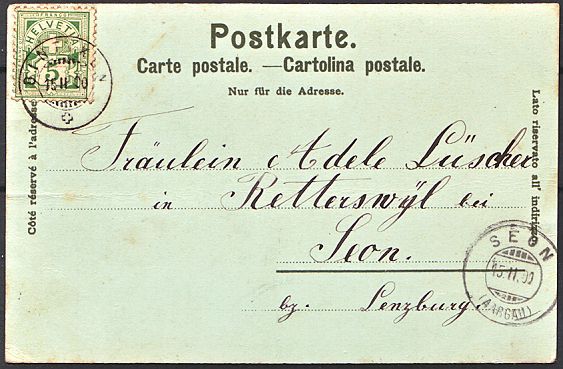 FRANCO
HELVETIA
5
15.II.00
Postkarte.
Carte postale. — Cartolina postale.
Nur für die Adresse.
Côté réservé à l'adresse
Lato riservato all' indirizzo
Fräulein Adele Lüscher
in Retterswÿl bei
Seon.
bz. Lenzburg.
SEON
15.II.00
(AARGAU)